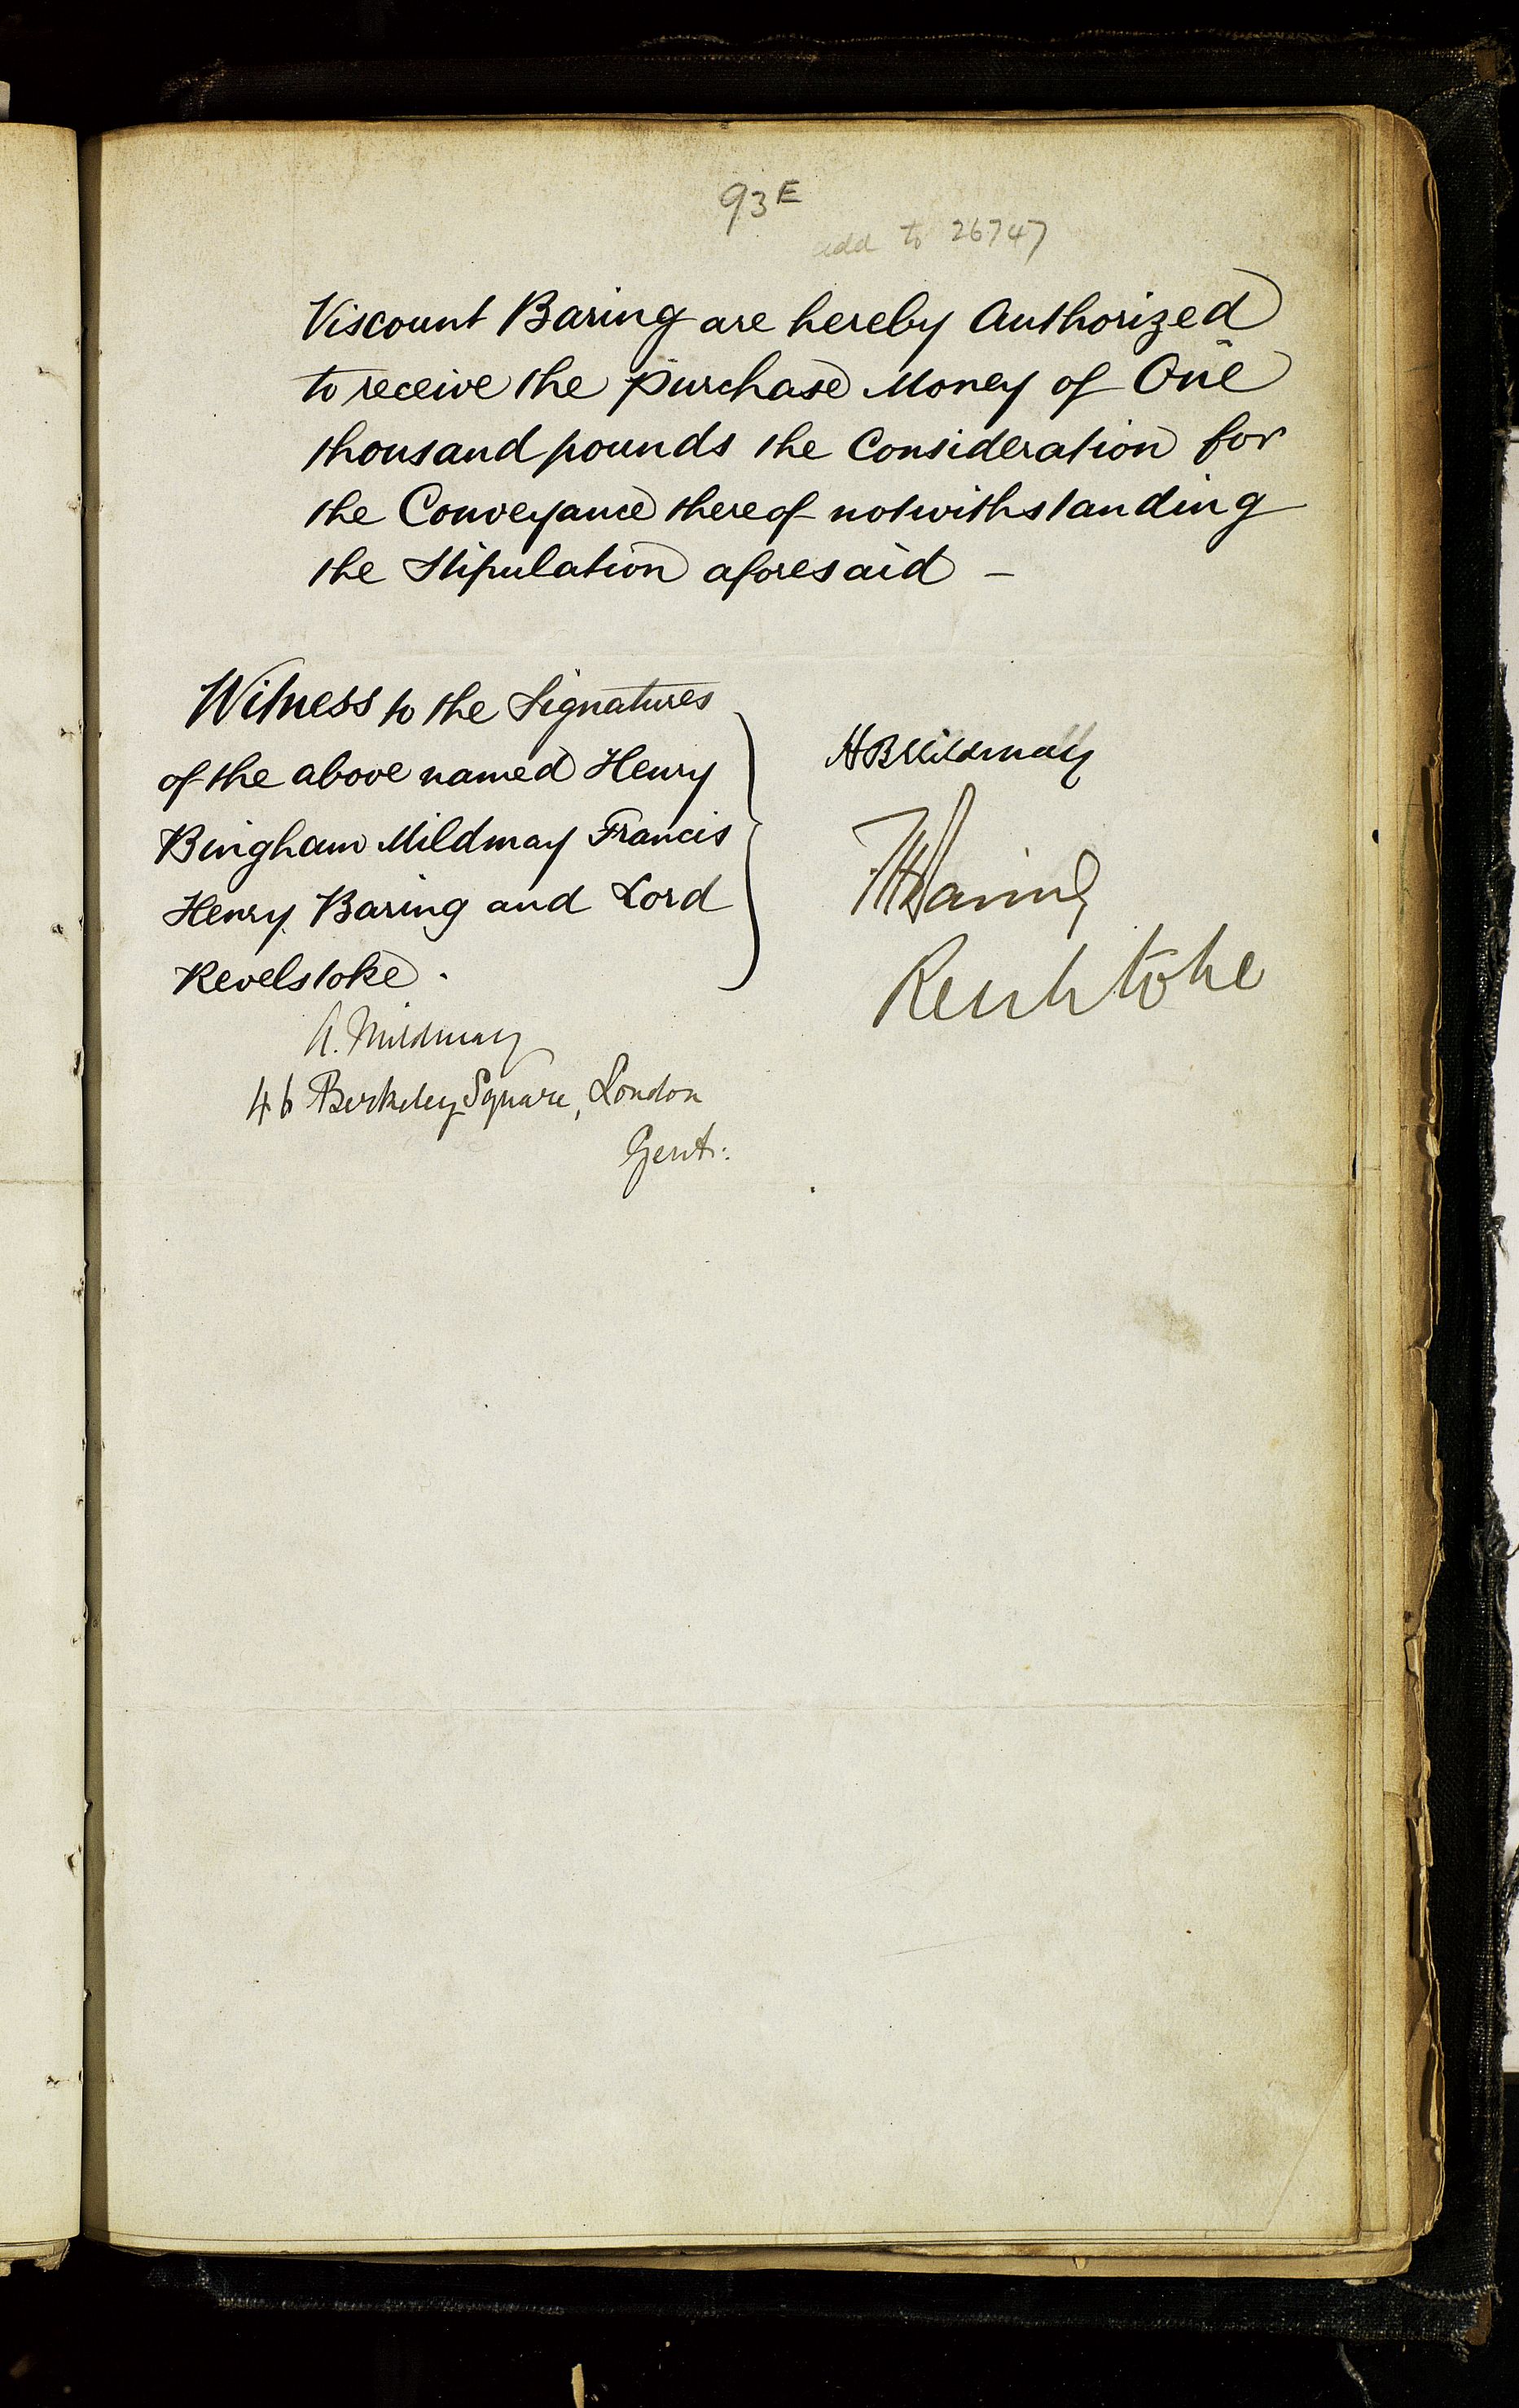 93E
add to 26747
Viscount Baring are hereby Authorized
to receive the purchase Money of One
thousand pounds the Consideration for
the Conveyance thereof notwithstanding
the Stipulation aforesaid —
Witness to the Signatures
of the above named Henry
Bingham Mildmay Francis
Henry Baring and Lord
Revelstoke.
A. Mildmay
46 Berkeley Square, London
Gent:
HBMildmay
FHBaring
Revelstoke